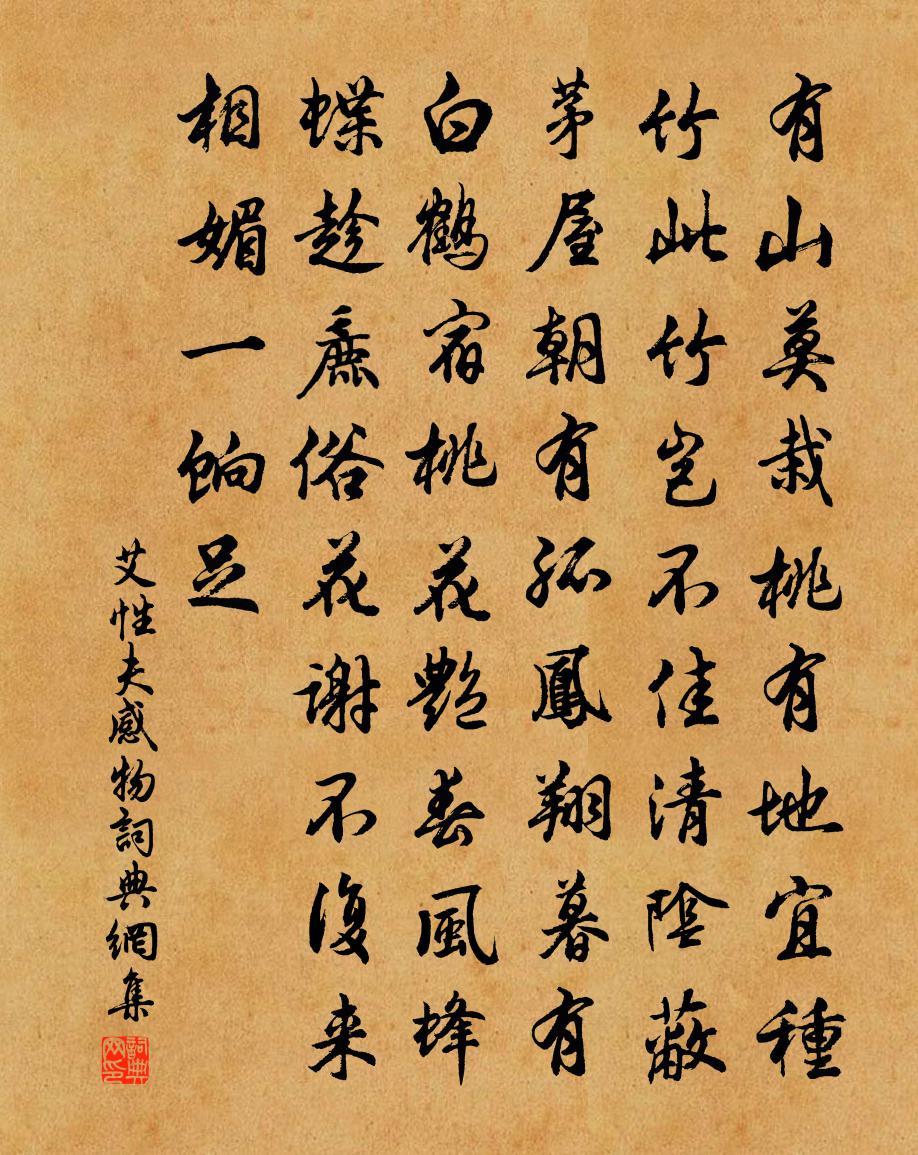 有山莫栽桃有地宜種
竹此竹豈不佳清陰蔽
茅屋朝有孤鳳翔暮有
白鶴宿桃花艷春風蜂
蝶趁麁俗花謝不復来
相媚一餉足
艾性夫感物詞典網集
詞典网印